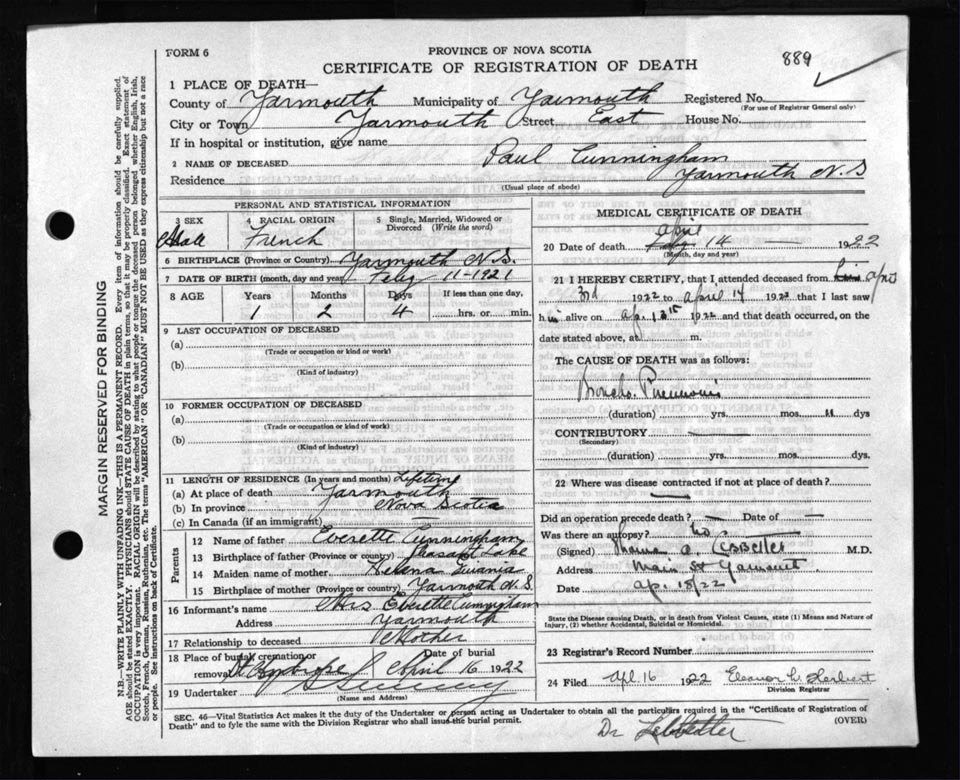 FORM 6
PROVINCE OF NOVA SCOTIA
CERTIFICATE OF REGISTRATION OF DEATH
889
1 PLACE OF DEATH—
County of Yarmouth Municipality of Yarmouth Registered No.
(For use of Registrar General only)
City or Town Yarmouth Street East House No.
If in hospital or institution, give name
2 NAME OF DECEASED Paul Cunningham
Residence Yarmouth N.S
(Usual place of abode)
PERSONAL AND STATISTICAL INFORMATION
3 SEX 4 RACIAL ORIGIN 5 Single, Married, Widowed or Divorced (Write the word)
Male French
6 BIRTHPLACE (Province or Country) Yarmouth N.S.
7 DATE OF BIRTH (month, day and year) Feby 11-1921
8 AGE Years Months Days If less than one day,
1 2 4 hrs. or min.
9 LAST OCCUPATION OF DECEASED
(a)
(Trade or occupation or kind or work)
(b)
(Kind of industry)
10 FORMER OCCUPATION OF DECEASED
(a)
(Trade or occupation or kind of work)
(b)
(Kind of industry)
11 LENGTH OF RESIDENCE (In years and months) Lifetime
(a) At place of death Yarmouth
(b) In province Nova Scotia
(c) In Canada (if an immigrant)
Parents
12 Name of father Everette Cunningham
13 Birthplace of father (Province or country) Pleasant Lake
14 Maiden name of mother Helena
15 Birthplace of mother (Province or country) Yarmouth N.S.
16 Informant's name Mrs Everette Cunningham
Address Yarmouth
17 Relationship to deceased Mother
18 Place of burial, cremation or removal St Ambrose Date of burial April 16 1922
19 Undertaker
(Name and Address)
MEDICAL CERTIFICATE OF DEATH
20 Date of death April 14 — 1922
(Month, day and year)
21 I HEREBY CERTIFY, that I attended deceased from
3rd 1922 to April 14 1922 that I last saw
him alive on 1922 and that death occurred, on the
date stated above, at m.
The CAUSE OF DEATH was as follows:
Broncho. Pneumonia
(duration) yrs. mos. 11 dys
CONTRIBUTORY
(Secondary)
(duration) yrs. mos. dys.
22 Where was disease contracted if not at place of death?
Did an operation precede death? — Date of —
Was there an autopsy? no.
(Signed) Thomas A. Lebbetter M.D.
Address Main St Yarmouth
Date Ap. 18/22
State the Disease causing Death, or in death from Violent Causes, state (1) Means and Nature of Injury, (2) whether Accidental, Suicidal or Homicidal.
23 Registrar's Record Number
24 Filed Apl 16 1922 Eleanor L. Herbert
Division Registrar
SEC. 46—Vital Statistics Act makes it the duty of the Undertaker or person acting as Undertaker to obtain all the particulars required in the "Certificate of Registration of
Death" and to fyle the same with the Division Registrar who shall issue the burial permit. (OVER)
Dr Lebbetter
MARGIN RESERVED FOR BINDING
N.B.—WRITE PLAINLY WITH UNFADING INK—THIS IS A PERMANENT RECORD. Every item of information should be carefully supplied.
AGE should be stated EXACTLY. PHYSICIANS should STATE CAUSE OF DEATH in plain terms, so that it may be properly classified. Exact statement of
OCCUPATION is very important. RACIAL ORIGIN will be described by stating to what people or tongue the deceased person belonged whether English, Irish,
Scotch, French, German, Russian, Ruthenian, etc. The terms "AMERICAN" OR "CANADIAN" MUST NOT BE USED as they express citizenship but not a race
or people. See instructions on back of Certificate.